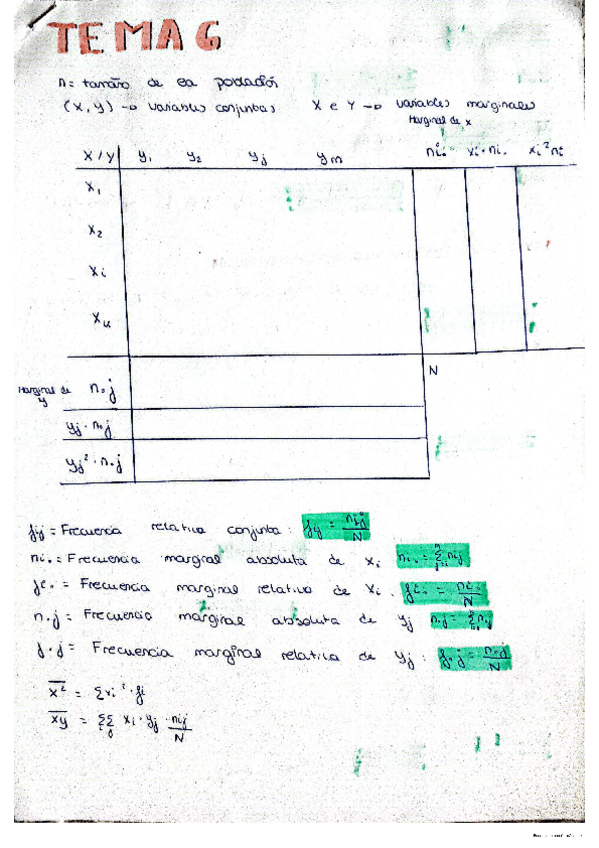 TEMA 6
n = tamaño de la población
(X, Y) → variables conjuntas X e Y → variables marginales
Marginal de x
X / Y y₁ y₂ yⱼ yₘ nᵢ. xᵢ · nᵢ. xᵢ² nᵢ
X₁
X₂
Xᵢ
Xₖ
N
Marginal de y n.ⱼ
yⱼ · n.ⱼ
yⱼ² · n.ⱼ
fᵢⱼ = Frecuencia relativa conjunta : fᵢⱼ = nᵢⱼ / N
nᵢ. = Frecuencia marginal absoluta de xᵢ nᵢ. = Σ nᵢⱼ
fᵢ. = Frecuencia marginal relativa de Xᵢ . fᵢ. = nᵢ. / N
n.ⱼ = Frecuencia marginal absoluta de yⱼ n.ⱼ = Σ nᵢⱼ
f.ⱼ = Frecuencia marginal relativa de yⱼ : f.ⱼ = n.ⱼ / N
x̅² = Σ xᵢ² · fᵢ
x̅y̅ = Σᵢ Σⱼ xᵢ · yⱼ · nᵢⱼ / N